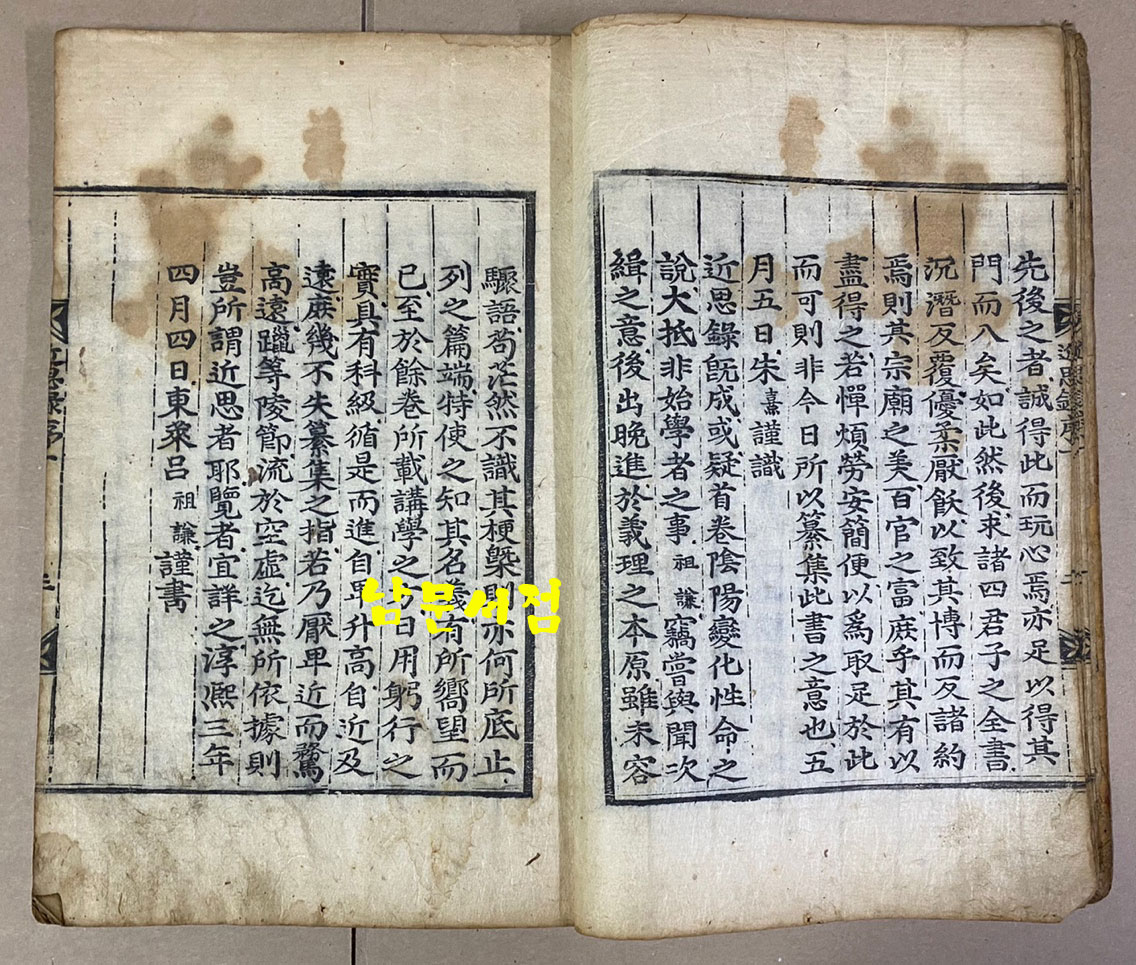 先後之者誠得此而玩心焉亦足以得其
門而入矣如此然後求諸四君子之全書
沉潛反覆優柔厭飫以致其博而反諸約
焉則其宗廟之美百官之富庶乎其有以
盡得之若憚煩勞安簡便以爲取足於此
而可則非今日所以纂集此書之意也五
月五日朱熹謹識
近思錄旣成或疑首卷陰陽變化性命之
說大抵非始學者之事祖謙竊嘗與聞次
緝之意後出晚進於義理之本原雖未容
驟語苟茫然不識其梗槩則亦何所底止
列之篇端特使之知其名義有所嚮望而
已至於餘卷所載講學之方日用躬行之
實具有科級循是而進自卑升高自近及
遠庶幾不失纂集之指若乃厭卑近而騖
高遠躐等陵節流於空虛迄無所依據則
豈所謂近思者耶覽者宜詳之淳熙三年
四月四日東萊呂祖謙謹書
남문서점